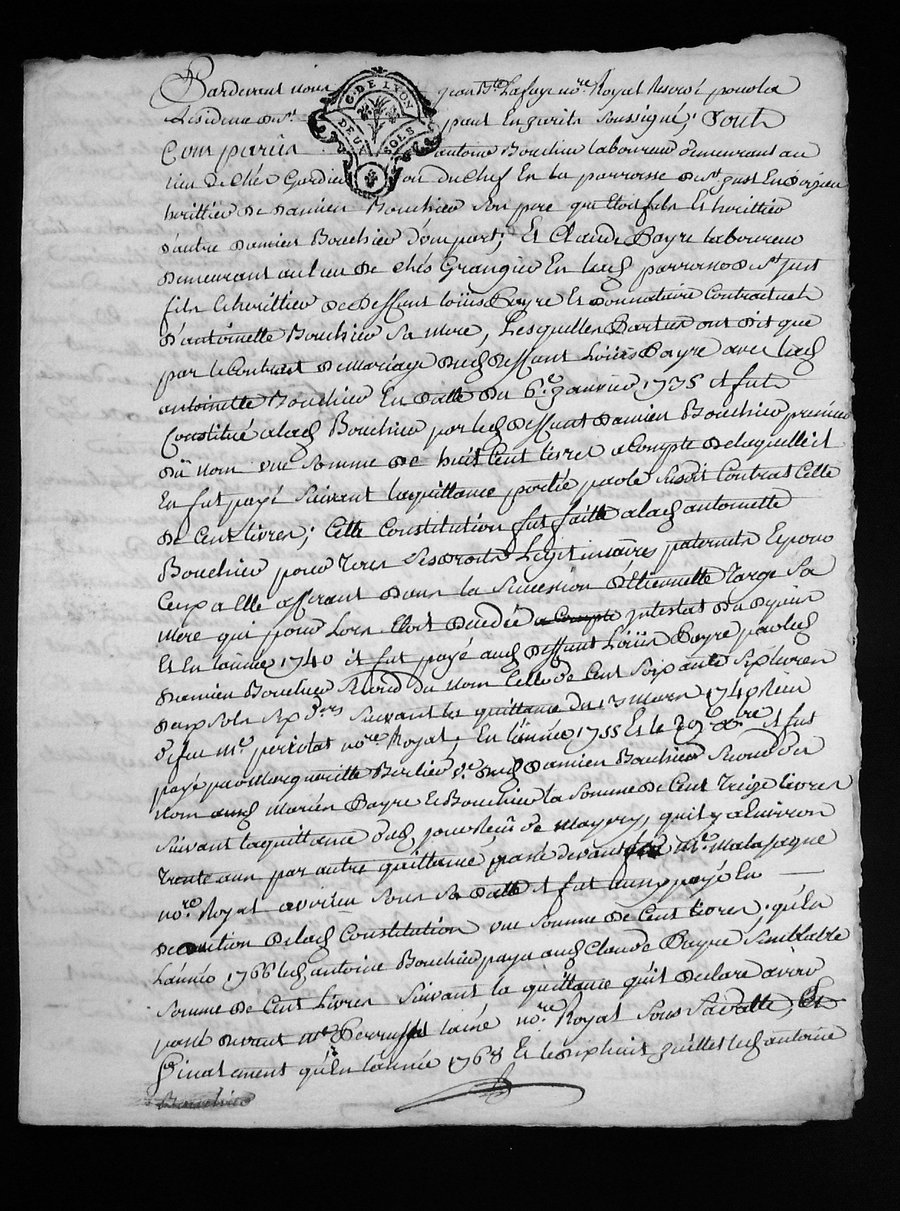 Pardevant nous jean Bte Lafaye nore Royal Reservé pour la
Residence de st paul En jarets soussigné; sont
C. DE LYON
DEUX SOLS
Comparûs antoine Bouchier laboureur demeurant au
lieu de chés Gardie ou du chef En la parroisse de st just En doizieu
herittier de damien Bouchier son pere qui Etoit fils Et herittier
d'autre damien Bouchier d'une part; Et Claude Bayre laboureur
demeurant au lieu de chés Grangier En lad parroisse de st just
fils Et herittier de deffunt Loüis Bayre Et donnataire Contractuel
d'antoinette Bouchier sa mere, Lesquelles Parties ont dit que
par le Contrat de mariage dud deffunt Loüis Bayre avec lad
antoinette Bouchier En datte du 6e janvier 1735 il fut
Constitué a lad Bouchier par led deffunt damien Bouchier premier
dû nom une somme de huit Cent livres a Compte de laquelle il
En fut payé suivant la quittance portée par le susdit Contrat Celle
de Cent livres; Cette Constitution fut faitte a lad antoinette
Bouchier pour tous ses droits Legitimaires paternels Et pour
Ceux a Elle afferant dans la succession d'Etiennette Farge sa
mere qui pour Lors Etoit decedée a Compte intestat
Et En l'année 1740 il fut payé aud deffunt Loüis Bayre par led
damien Bouchier second du nom Celle de Cent soixante sept livres
deux sols six drs suivant la quittance du 13 mars 1740 Reçu
nore Royal; En l'année 1755 Et le 20 Xbre il fut
payé par Margueritte Berlier ve dud damien Bouchier second du
nom aud Marien Bayre Et Bouchier la somme de Cent treize livres
suivant la quittance dud jour Reçû de Mayery, qu'il y a Environ
trente ans par autre quittance passé devant me Malassagne
nore Royal a virlieu sous sa datte il fut payé En
deduction de lad Constitution une somme de Cent livres; qu'En
L'année 1766 led antoine Bouchier paya aud Claude Bayre semblable
somme de Cent Livres suivant la quittance qu'il declare avoir
passé devant me l'ainé nore Royal sous sa datte, Et
finalement qu'En l'année 1768 Et le dix huit juillet led antoine
Bouchier